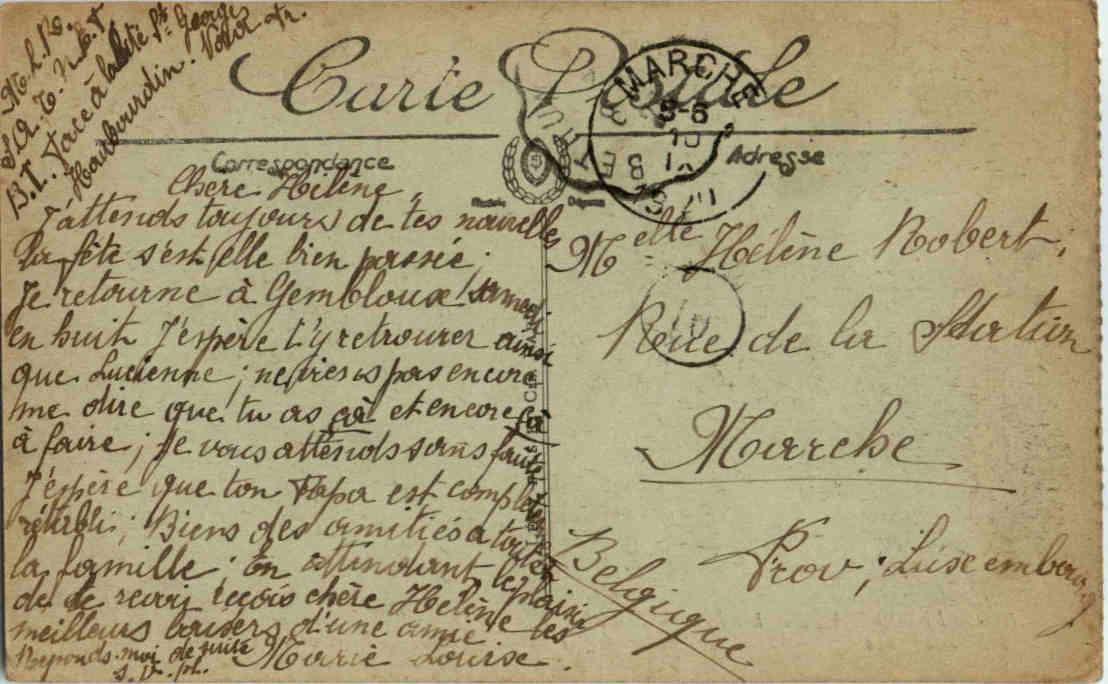 Carte Postale
Correspondance
Adresse
MARCHE
8-9
10
IX
Face à la cité St George
Haubourdin. Nord Fr.
Chère Hélène,
J'attends toujours de tes nouvelles
la fête s'est elle bien passée;
Je retourne à Gembloux samedi
en huit J'espère t'y retrouver ainsi
que Lucienne; ne viens pas encore
me dire que tu as çà et encore çà
à faire; Je vous attends sans faute
J'espère que ton Papa est complèt
rétabli; Biens des amitiés a toute
la famille; En attendant le plaisir
de te revoir reçois chère Hélène les
meilleurs baisers d'une amie
Marie Louise.
Reponds-moi de suite
s. v. pl.
Melle Hélène Robert,
Rue de la Station
Marche
Prov; Luxembourg
Belgique